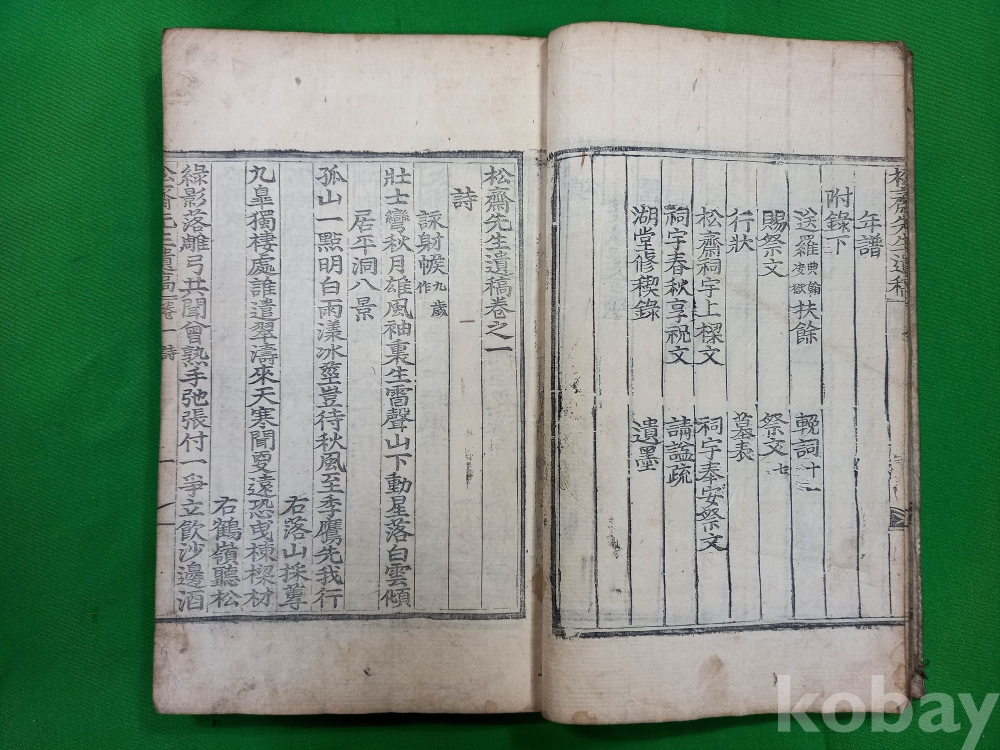 年譜
附錄下
送羅典翰凌嶽扶餘 輓詞十二
賜祭文 祭文七
行狀 墓表
松齋祠宇上樑文 祠宇奉安祭文
祠宇春秋享祝文 請謚疏
湖堂修稧錄 遺墨
松齋先生遺稿卷之一
詩
詠射帿九歲作
壯士彎秋月雄風袖裏生雷聲山下動星落白雲傾
居平洞八景
孤山一點明白雨漾冰壺豈待秋風至季鷹先我行
右落山採蓴
九皐獨棲處誰遣翠濤來天寒聞更遠恐曳棟樑材
右鶴嶺聽松
綠影落雕弓共聞曾熟手弛張付一爭立飮沙邊酒
松齋先生遺稿 卷一 詩
kobay